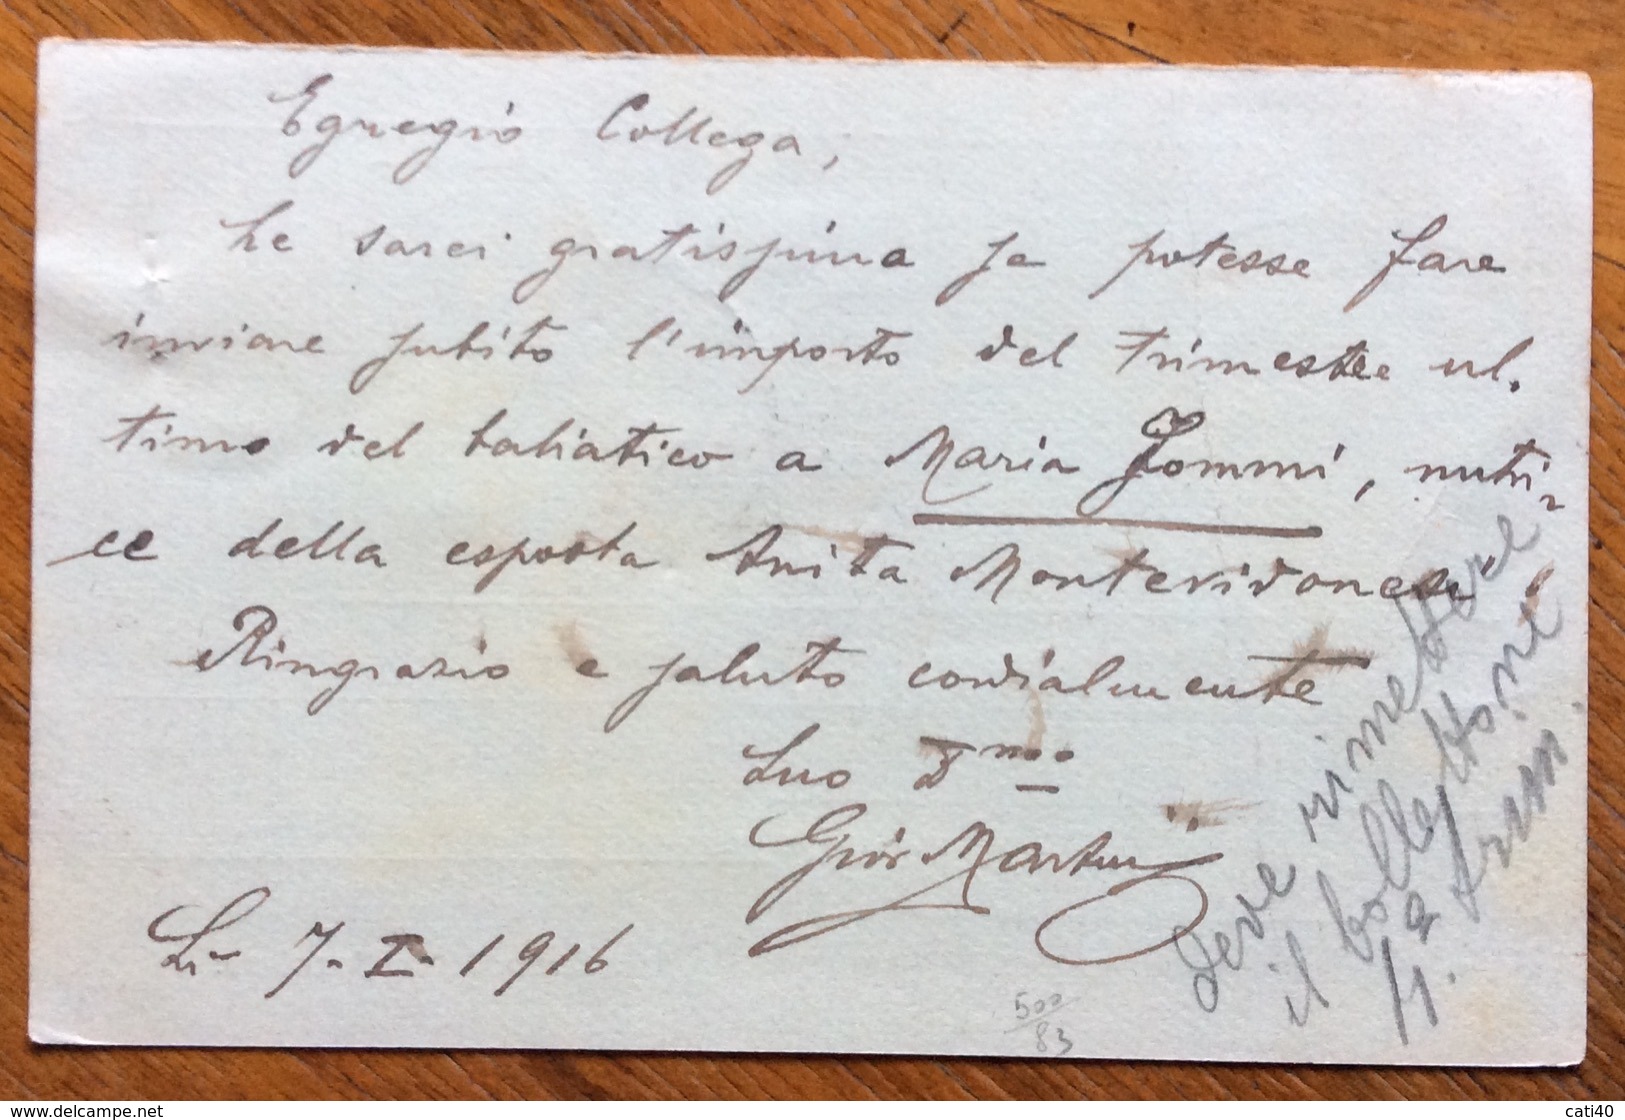 Egregio Collega,
Le sarei gratissima se potesse fare
inviare subito l'importo del trimestre ul-
timo del baliatico a Maria Jommi, nutri-
ce della esposta Anita Montevidonesi
Ringrazio e saluto cordialmente
Suo Dmo
Gior Martini
Lì 7-I-1916
deve rimettere
il bollettone
4° trim.
500
83
cati40